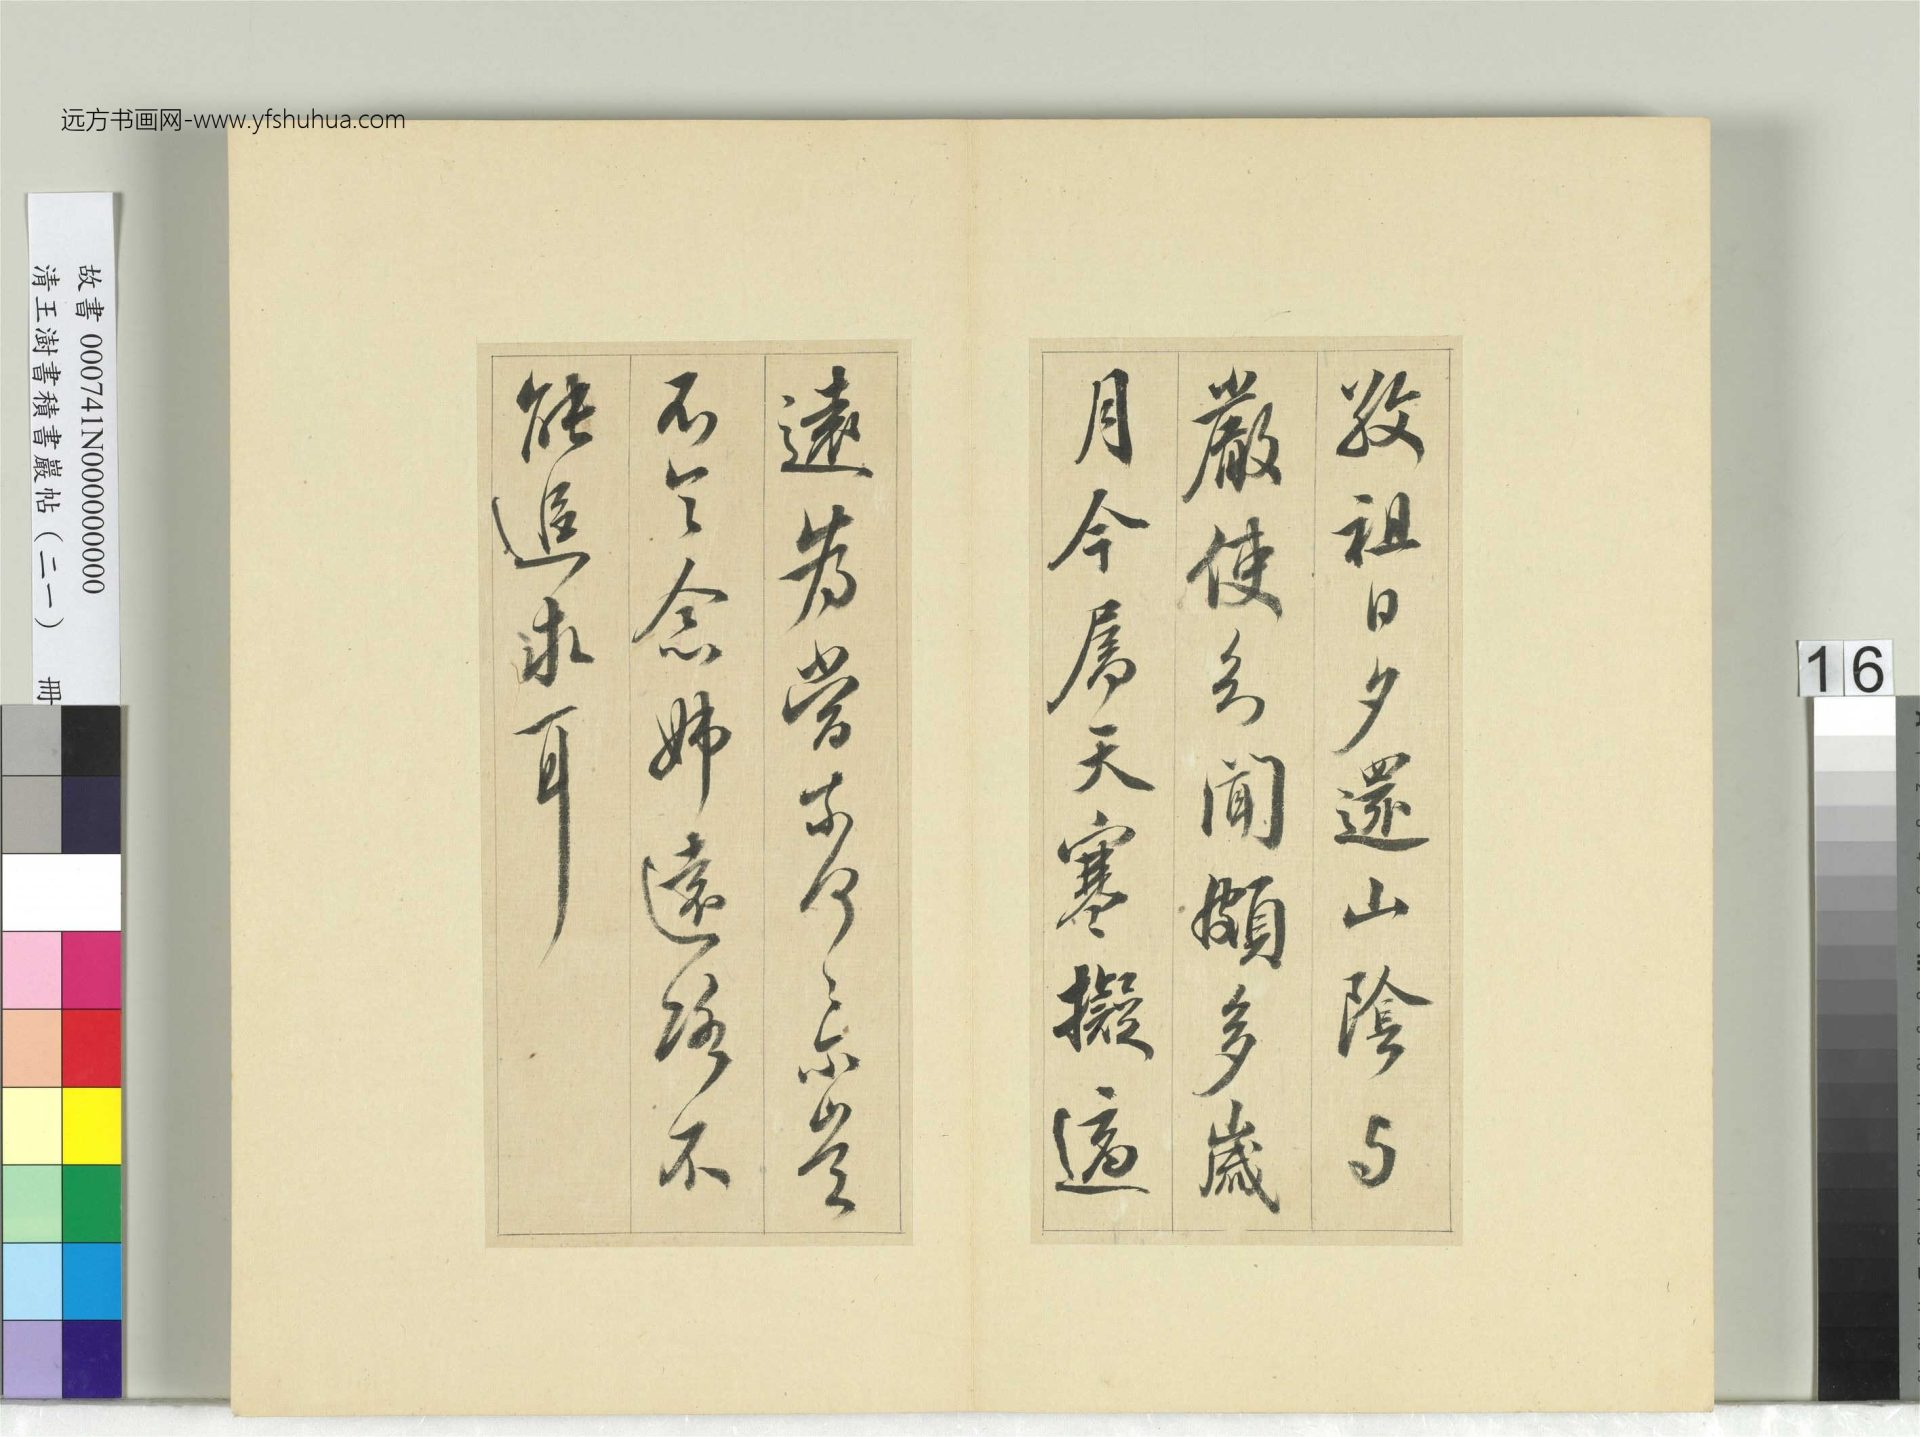 远方书画网-www.yfshuhua.com
敬祖日夕還山陰与
嚴使君聞頗多歲
月今屬天寒擬適
遠為當奈何〻〻爾豈
不令念姊遠路不
能追求耳
故書 000741N000000000
清王澍書積書巖帖（二一） 冊
16